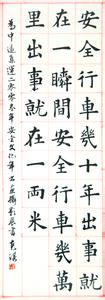 安全行車幾十年出事就
在一瞬間安全行車幾萬
里出事就在一兩米
為中遠集運二零零叁年安全文化年